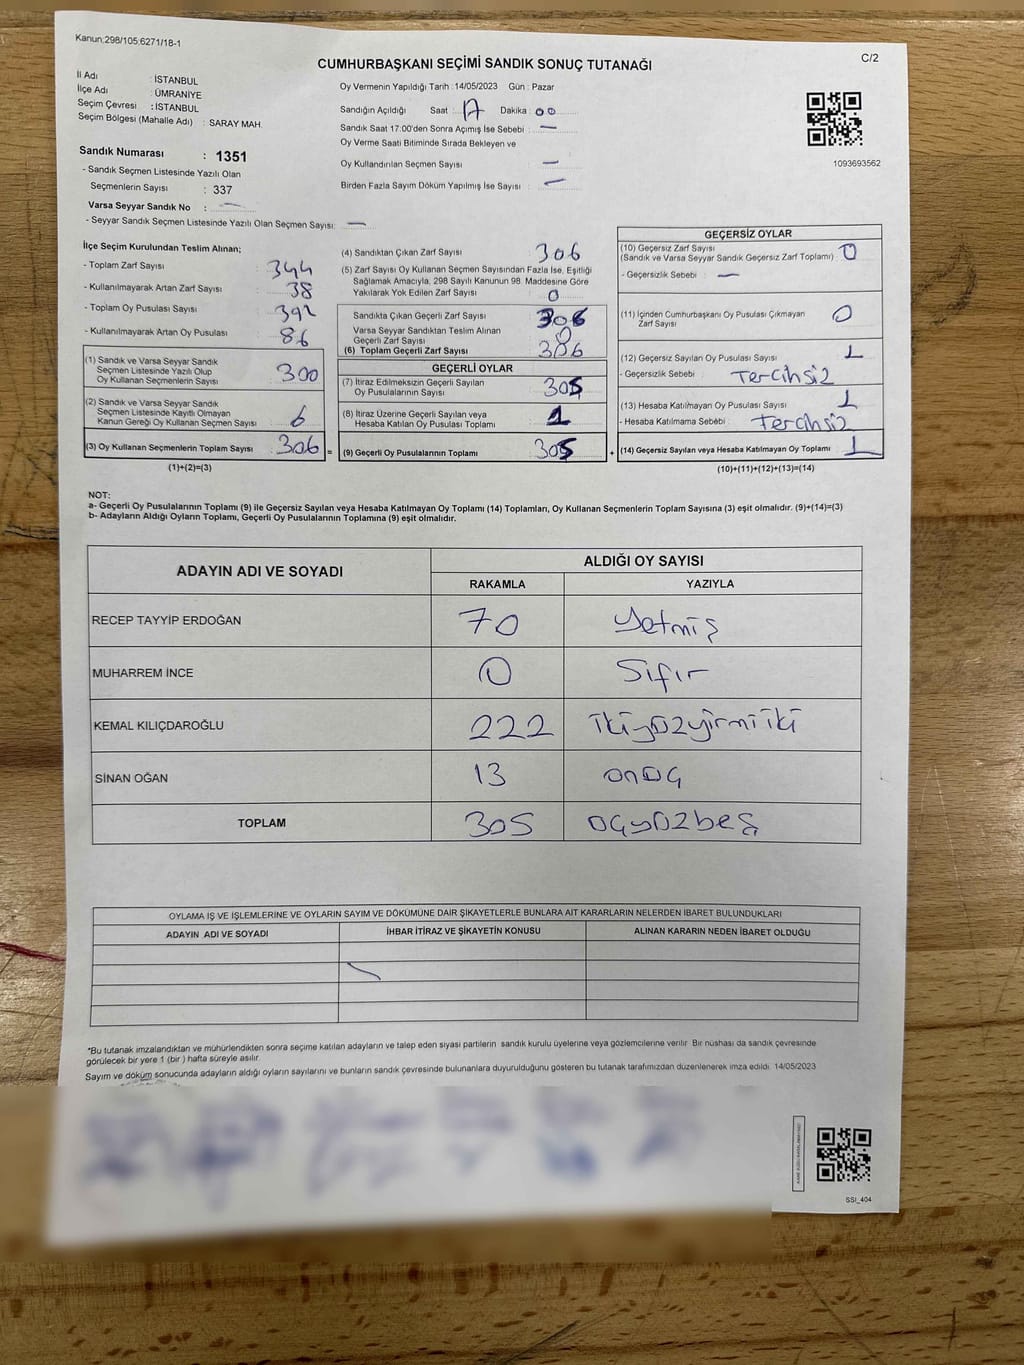 Kanun;298/105;6271/18-1
C/2
CUMHURBAŞKANI SEÇİMİ SANDIK SONUÇ TUTANAĞI
İl Adı : İSTANBUL
İlçe Adı : ÜMRANİYE
Seçim Çevresi : İSTANBUL
Seçim Bölgesi (Mahalle Adı) : SARAY MAH.
Sandık Numarası : 1351
- Sandık Seçmen Listesinde Yazılı Olan
Seçmenlerin Sayısı : 337
Varsa Seyyar Sandık No : —
- Seyyar Sandık Seçmen Listesinde Yazılı Olan Seçmen Sayısı: —
Oy Vermenin Yapıldığı Tarih : 14/05/2023 Gün : Pazar
Sandığın Açıldığı Saat : 17 Dakika : 00
Sandık Saat 17:00'den Sonra Açımış İse Sebebi : —
Oy Verme Saati Bitiminde Sırada Bekleyen ve
Oy Kullandırılan Seçmen Sayısı : —
Birden Fazla Sayım Döküm Yapılmış İse Sayısı : —
1093693562
İlçe Seçim Kurulundan Teslim Alınan;
- Toplam Zarf Sayısı : 344
- Kullanılmayarak Artan Zarf Sayısı : 38
- Toplam Oy Pusulası Sayısı : 392
- Kullanılmayarak Artan Oy Pusulası : 86
(1) Sandık ve Varsa Seyyar Sandık
Seçmen Listesinde Yazılı Olup
Oy Kullanan Seçmenlerin Sayısı : 300
(2) Sandık ve Varsa Seyyar Sandık
Seçmen Listesinde Kayıtlı Olmayan
Kanun Gereği Oy Kullanan Seçmen Sayısı : 6
(3) Oy Kullanan Seçmenlerin Toplam Sayısı : 306 =
(1)+(2)=(3)
(4) Sandıktan Çıkan Zarf Sayısı : 306
(5) Zarf Sayısı Oy Kullanan Seçmen Sayısından Fazla İse, Eşitliği
Sağlamak Amacıyla, 298 Sayılı Kanunun 98. Maddesine Göre
Yakılarak Yok Edilen Zarf Sayısı : 0
Sandıkta Çıkan Geçerli Zarf Sayısı : 306
Varsa Seyyar Sandıktan Teslim Alınan
Geçerli Zarf Sayısı : 0
(6) Toplam Geçerli Zarf Sayısı : 306
GEÇERLİ OYLAR
(7) İtiraz Edilmeksizin Geçerli Sayılan
Oy Pusulalarının Sayısı : 305
(8) İtiraz Üzerine Geçerli Sayılan veya
Hesaba Katılan Oy Pusulası Toplamı : 1
(9) Geçerli Oy Pusulalarının Toplamı : 305 +
GEÇERSİZ OYLAR
(10) Geçersiz Zarf Sayısı
(Sandık ve Varsa Seyyar Sandık Geçersiz Zarf Toplamı) : 0
- Geçersizlik Sebebi : —
(11) İçinden Cumhurbaşkanı Oy Pusulası Çıkmayan
Zarf Sayısı : 0
(12) Geçersiz Sayılan Oy Pusulası Sayısı : 1
- Geçersizlik Sebebi : Tercihsiz
(13) Hesaba Katılmayan Oy Pusulası Sayısı : 1
- Hesaba Katılmama Sebebi : Tercihsiz
(14) Geçersiz Sayılan veya Hesaba Katılmayan Oy Toplamı : 1
(10)+(11)+(12)+(13)=(14)
NOT:
a- Geçerli Oy Pusulalarının Toplamı (9) ile Geçersiz Sayılan veya Hesaba Katılmayan Oy Toplamı (14) Toplamları, Oy Kullanan Seçmenlerin Toplam Sayısına (3) eşit olmalıdır. (9)+(14)=(3)
b- Adayların Aldığı Oyların Toplamı, Geçerli Oy Pusulalarının Toplamına (9) eşit olmalıdır.
ADAYIN ADI VE SOYADI ALDIĞI OY SAYISI
RAKAMLA YAZIYLA
RECEP TAYYİP ERDOĞAN 70 Yetmiş
MUHARREM İNCE 0 Sıfır
KEMAL KILIÇDAROĞLU 222 ikiyüzyirmiiki
SİNAN OĞAN 13 onüç
TOPLAM 305 üçyüzbeş
OYLAMA İŞ VE İŞLEMLERİNE VE OYLARIN SAYIM VE DÖKÜMÜNE DAİR ŞİKAYETLERLE BUNLARA AİT KARARLARIN NELERDEN İBARET BULUNDUKLARI
ADAYIN ADI VE SOYADI İHBAR İTİRAZ VE ŞİKAYETİN KONUSU ALINAN KARARIN NEDEN İBARET OLDUĞU
*Bu tutanak imzalandıktan ve mühürlendikten sonra seçime katılan adayların ve talep eden siyasi partilerin sandık kurulu üyelerine veya gözlemcilerine verilir. Bir nüshası da sandık çevresinde
görülecek bir yere 1 (bir ) hafta süreyle asılır.
Sayım ve döküm sonucunda adayların aldığı oyların sayılarını ve bunların sandık çevresinde bulunanlara duyurulduğunu gösteren bu tutanak tarafımızdan düzenlenerek imza edildi. 14/05/2023
SSI_404